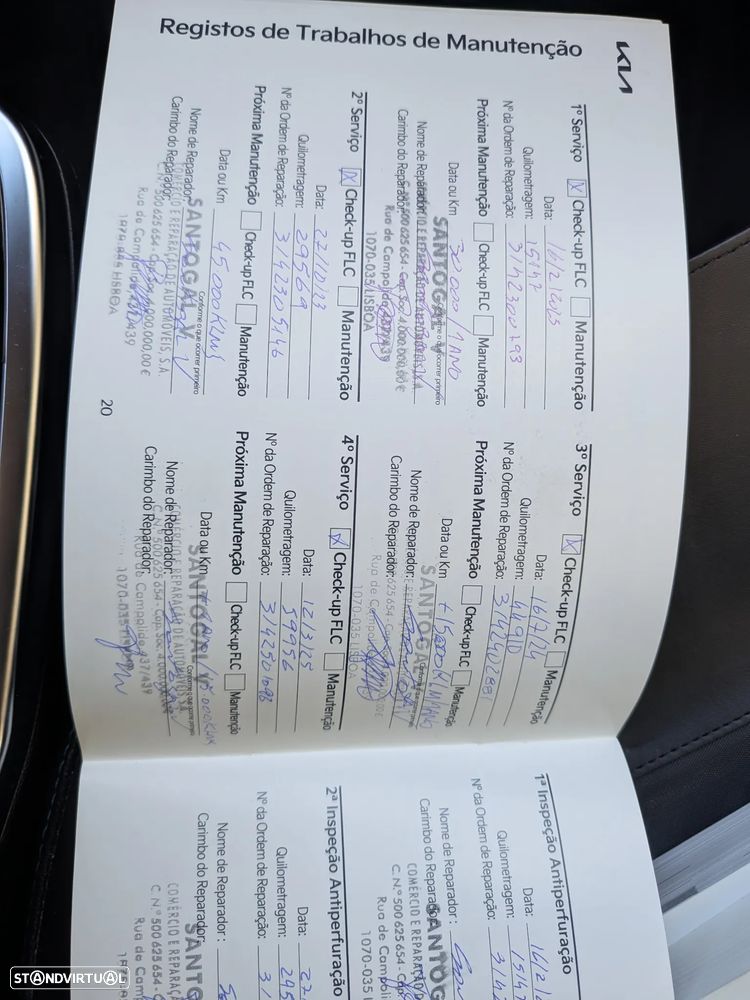 Registos de Trabalhos de Manutenção
KIA
1º Serviço Check-up FLC Manutenção
Data: 16/2/2023
Quilometragem: 15147
Nº da Ordem de Reparação: 3142300793
Próxima Manutenção Check-up FLC Manutenção
Data ou Km 30 000 / 1 ANO
Conforme o que ocorrer primeiro
Nome de Reparador:
Carimbo do Reparador:
SANTOGAL V
COMÉRCIO E REPARAÇÃO DE AUTOMÓVEIS, S.A.
C. N.º 500 625 654 - Cap. Soc. 4.000.000,00 €
Rua de Campolide 437/439
1070-035 LISBOA
2º Serviço Check-up FLC Manutenção
Data: 27/10/23
Quilometragem: 29569
Nº da Ordem de Reparação: 3142305146
Próxima Manutenção Check-up FLC Manutenção
Data ou Km 45 000 KLMS
Conforme o que ocorrer primeiro
Nome de Reparador:
Carimbo do Reparador:
SANTOGAL V
COMÉRCIO E REPARAÇÃO DE AUTOMÓVEIS, S.A.
500 625 654 - Cap. Soc. 4.000.000,00 €
Rua de Campolide 437/439
1070-035 LISBOA
20
3º Serviço Check-up FLC Manutenção
Data: 16/7/24
Quilometragem: 44910
Nº da Ordem de Reparação:
Próxima Manutenção Check-up FLC Manutenção
Data ou Km
Nome de Reparador:
Carimbo do Reparador:
SANTOGAL V
Rua de Campolide
1070-035 LISBOA
4º Serviço Check-up FLC Manutenção
Data: 12/3/25
Quilometragem: 59956
Nº da Ordem de Reparação: 3142501698
Próxima Manutenção Check-up FLC Manutenção
Data ou Km
Nome de Reparador:
Carimbo do Reparador:
SANTOGAL V
COMÉRCIO E REPARAÇÃO DE AUTOMÓVEIS, S.A.
C. N.º 500 625 654 - Cap. Soc. 4.000.000,00 €
Rua de Campolide 437/439
1070-035 LISBOA
1ª Inspeção Antiperfuração
Data: 16/2/
Quilometragem: 1514
Nº da Ordem de Reparação: 3142
Nome de Reparador :
Carimbo do Reparador:
SANTOG
COMÉRCIO E REPARAÇÃO
C. N.º 500 625 654 - Cap
Rua de Campolid
1070-035 L
2ª Inspeção Antiperfuração
Data: 27-
Quilometragem: 295
Nº da Ordem de Reparação: 31
Nome de Reparador :
Carimbo do Reparador:
SANTOG
COMÉRCIO E REPARAÇ
C. N.º 500 625 654 - C
Rua de Cam
STANDVIRTUAL